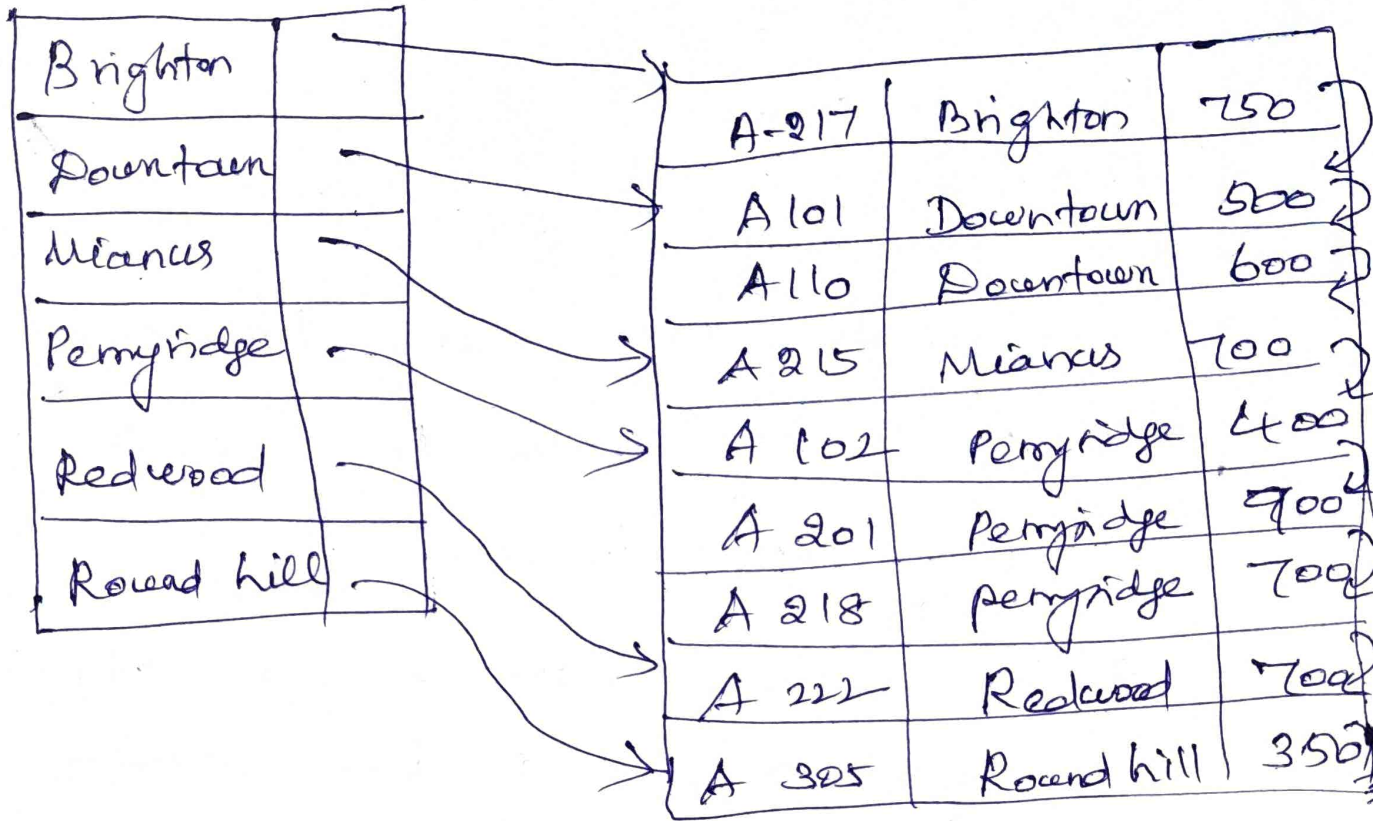 Brighton
Downtown
Mianus
Perryridge
Redwood
Round hill
A-217 Brighton 750
A 101 Downtown 500
A 110 Downtown 600
A 215 Mianus 700
A 102 Perryridge 400
A 201 Perryridge 900
A 218 perryridge 700
A 222 Redwood 700
A 305 Round hill 350